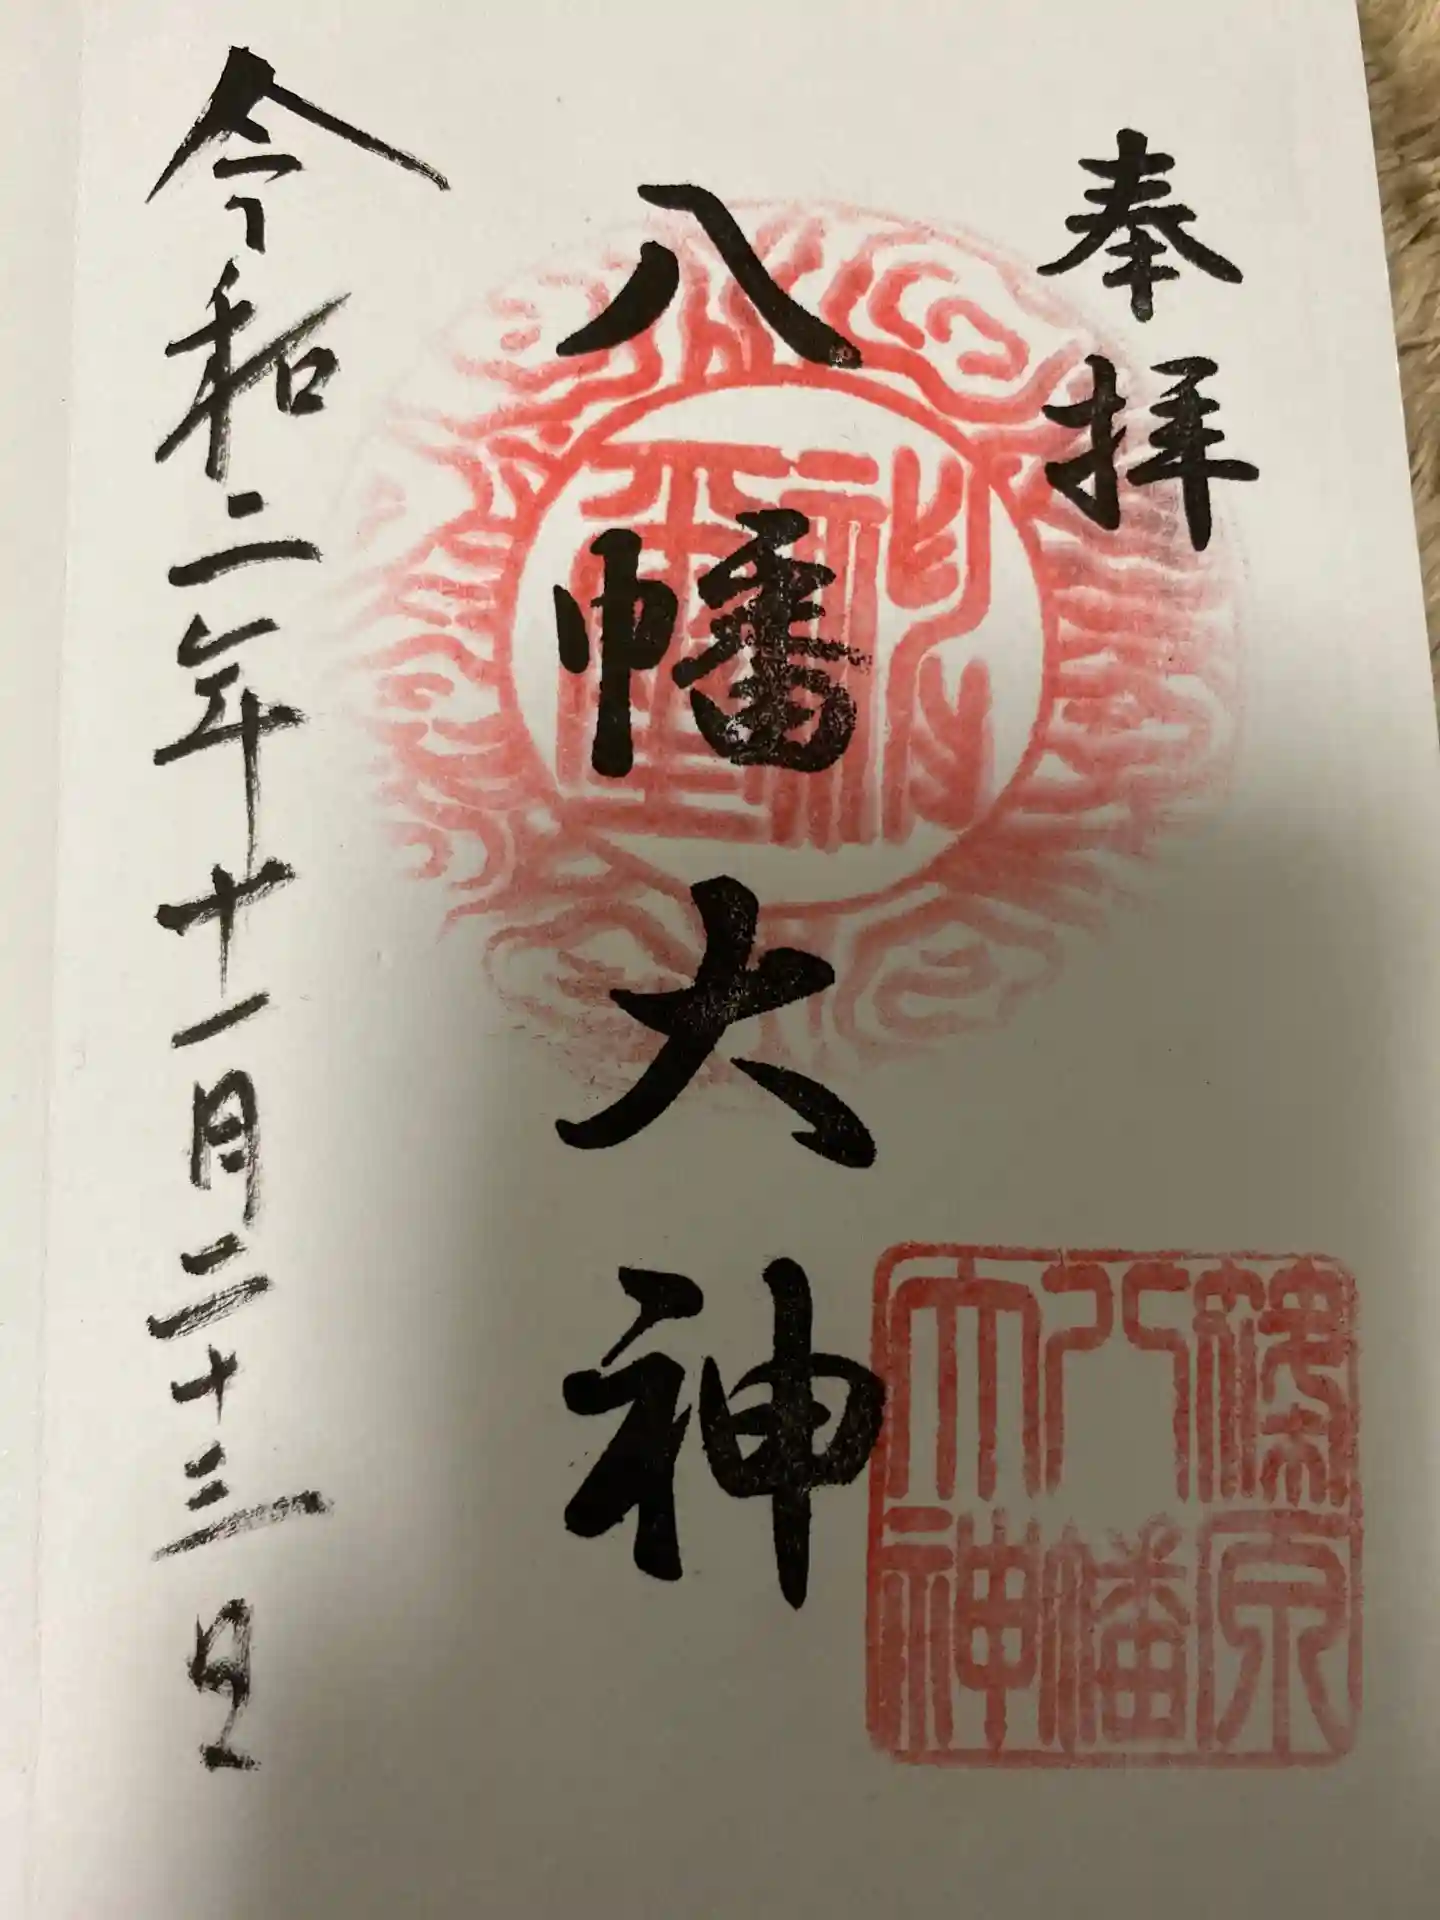 奉拝
八幡大神
令和二年十一月二十三日
原
八幡
大神